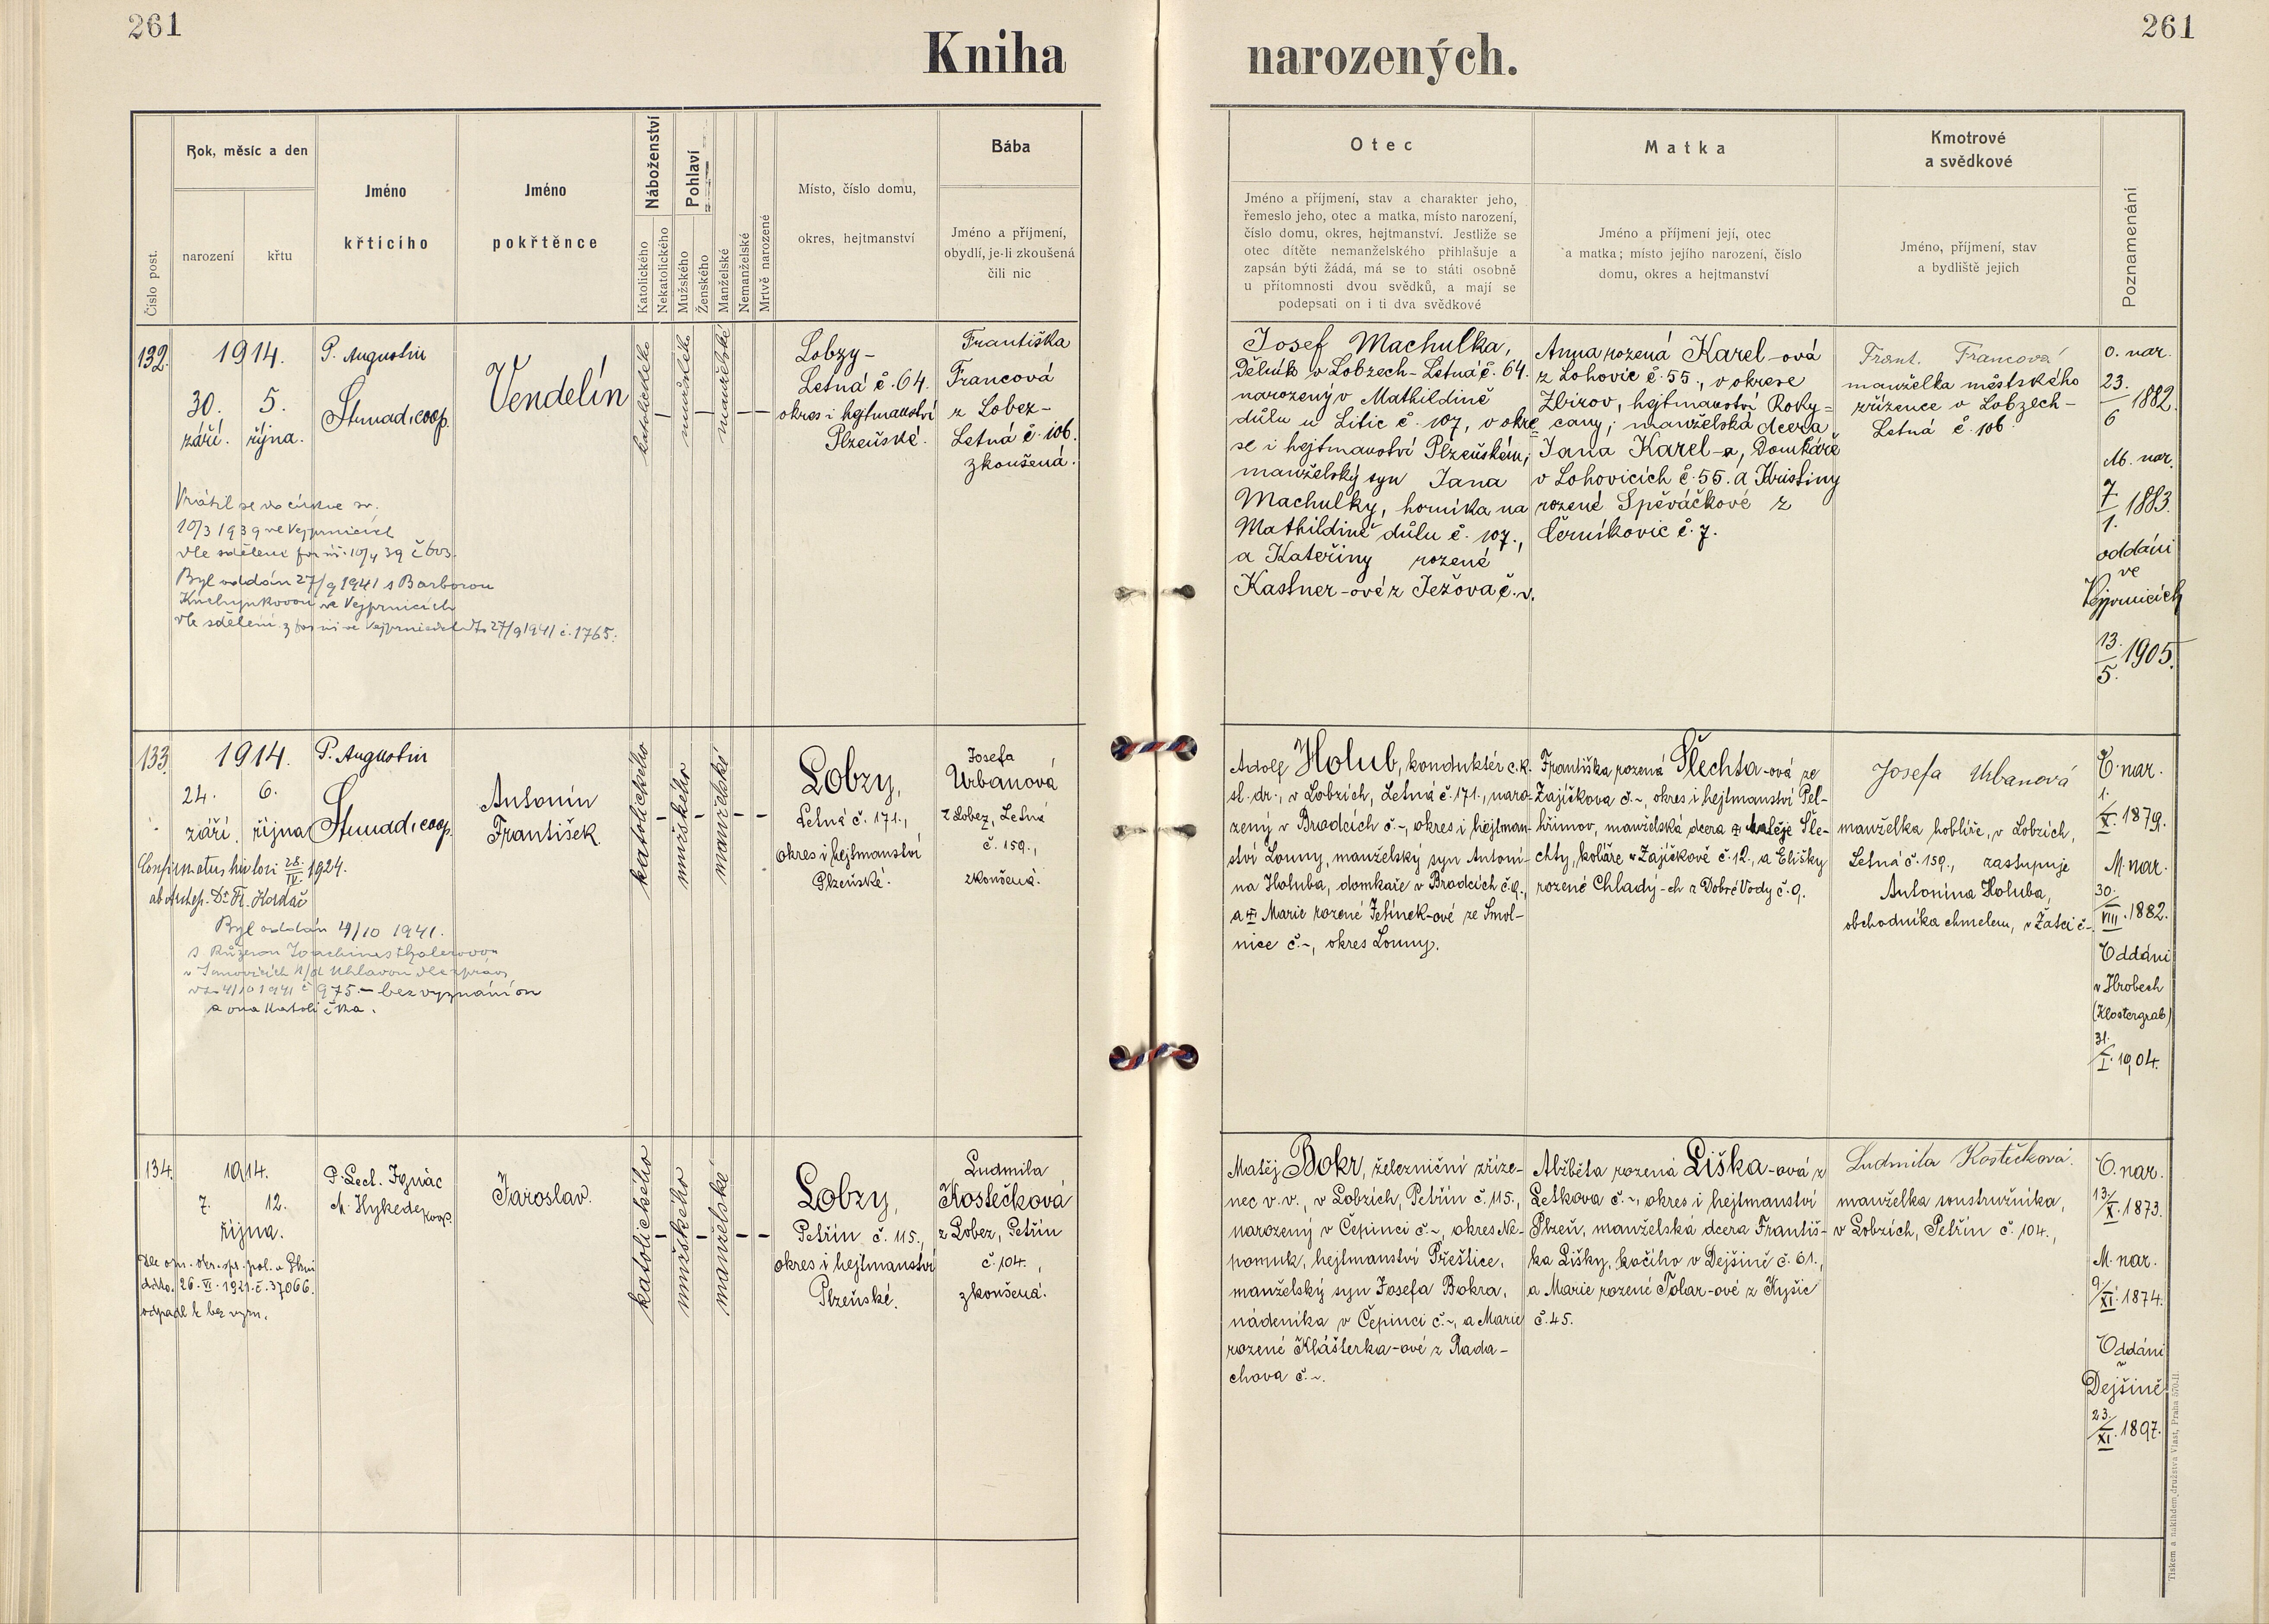 261
261
Kniha narozených.
Číslo post.
Rok, měsíc a den
narození
křtu
Jméno
křtícího
Jméno
pokřtěnce
Náboženství
Katolického
Nekatolického
Pohlaví
Mužského
Ženského
Manželské
Nemanželské
Mrtvě narozené
Místo, číslo domu,
okres, hejtmanství
Bába
Jméno a příjmení,
obydlí, je-li zkoušená
čili nic
Otec
Jméno a příjmení, stav a charakter jeho,
řemeslo jeho, otec a matka, místo narození,
číslo domu, okres, hejtmanství. Jestliže se
otec dítěte nemanželského přihlašuje a
zapsán býti žádá, má se to státi osobně
u přítomnosti dvou svědků, a mají se
podepsati on i ti dva svědkové
Matka
Jméno a příjmení její, otec
a matka; místo jejího narození, číslo
domu, okres a hejtmanství
Kmotrové
a svědkové
Jméno, příjmení, stav
a bydliště jejich
Poznamenání
132.
1914.
30. 5.
září. října.
P. Augustin
Strnad, coop.
Vendelín
katolického
mužského
manželské
Lobzy-
Letná č. 64.
okres i hejtmanství
Plzeňské.
Františka
Francová
z Lobez-
Letná č. 106.
zkoušená.
Vrátil se do církve sv.
10/3 1939 ve Vejprnicích
dle sdělení far. úř. 10/4 39 č 603.
Byl oddán 27/9 1941 s Barborou
ve Vejprnicích
dle sdělení z far úř ve Vejprnicích dto 27/9 1941 č. 1765.
Josef Machulka,
Dělník v Lobzech-Letná č. 64.
narozený v Mathildině
důlu u Litic č. 107, v okre
se i hejtmanství Plzeňském;
manželský syn Jana
Machulky, horníka na
Mathildině důlu č. 107.,
a Kateřiny rozené
Kastner-ové z Ježova č. v.
Anna rozená Karel-ová
z Lohovic č. 55., v okrese
Zbirov, hejtmanství Roky=
cany; manželská dcera
Jana Karel-a, Domkáře
v Lohovicích č. 55. a Kristiny
rozené Spěváčkové z
Černíkovic č. 7.
Frant. Francová
manželka městského
zřízence v Lobzech-
Letná č. 106
O. nar.
23.
6
1882.
M. nar.
7
1.
1883.
oddáni
ve
Vejprnicích
13.
5.
1905.
133.
1914.
24. 6.
září. října
P. Augustin
Strnad, coop.
Antonín
František.
katolického
mužského
manželské
Lobzy,
Letná č. 171.,
okres i hejtmanství
Plzeňské.
Josefa
Urbanová
z Lobez, Letná
č. 159.,
zkoušená.
Confirmatus hic loci 28./IV. 1924.
ab Archep. Dr. Fr. Kordač
Byl oddán 4/10 1941.
s Růženou Joachimsthalerovou
v Janovicích n/d Uhlavou dle zprávy
dto 4/10 1941 č 975.- bez vyznání on
a ona katolička.
Adolf Holub, konduktér c.k.
st. dr., v Lobzích, Letná č. 171., naro-
zený v Brodcích č.~, okres i hejtman-
ství Louny, manželský syn Antoní-
na Holuba, domkaře v Brodcích č. 9.,
a Marie rozené Jelínek-ové ze Smol-
nice č.~, okres Louny.
Františka rozená Šlechta-ová ze
Zajíčkova č.~, okres i hejtmanství Pel-
hřimov, manželská dcera Matěje Šle-
chty, koláře v Zajíčkově č. 12., a Elišky
rozené Chladý-ch z Dobré Vody č. 9.
Josefa Urbanová
manželka hoblíře, v Lobzích,
Letná č. 159., zastupuje
Antonína Holuba,
obchodníka chmelem, v Žatci č~.
O. nar.
1.
X. 1879.
M. nar.
30.
VIII. 1882.
Oddáni
v Hrobech
(Klostergrab)
31.
I. 1904.
134.
1914.
7. 12.
října.
P. Lect. Ignác
M. Hykede, koop.
Jaroslav.
katolického
mužského
manželské
Lobzy,
Petřín č. 115.,
okres i hejtmanství
Plzeňské.
Ludmila
Kostečková
z Lobez, Petřín
č. 104.,
zkoušená.
Dle ozn. okr. spr. pol. v Plzni
ddto. 26. VI. 1921. č. 37066.
odpadl k bez vyzn.
Matěj Bokr, železniční zříze-
nec v. v., v Lobzích, Petřín č. 115.,
narozený v Čepinci č.~, okres Ne-
pomuk, hejtmanství Přeštice,
manželský syn Josefa Bokra,
nádeníka v Čepinci č.~, a Marie
rozené Klášterka-ové z Rada-
chova č.~.
Alžběta rozená Liška-ová z
Letkova č.~, okres i hejtmanství
Plzeň, manželská dcera Františ-
ka Lišky, kočího v Dejšině č. 61.,
a Marie rozené Tolar-ové z Kyšic
č. 45.
Ludmila Kostečková.
manželka soustružníka,
v Lobzích, Petřín č. 104.,
O. nar.
13./X. 1873.
M. nar.
9./XI. 1874.
Oddáni
v
Dejšině
23./XI. 1897.
Tiskem a nákladem družstva Vlast, Praha 570-II.